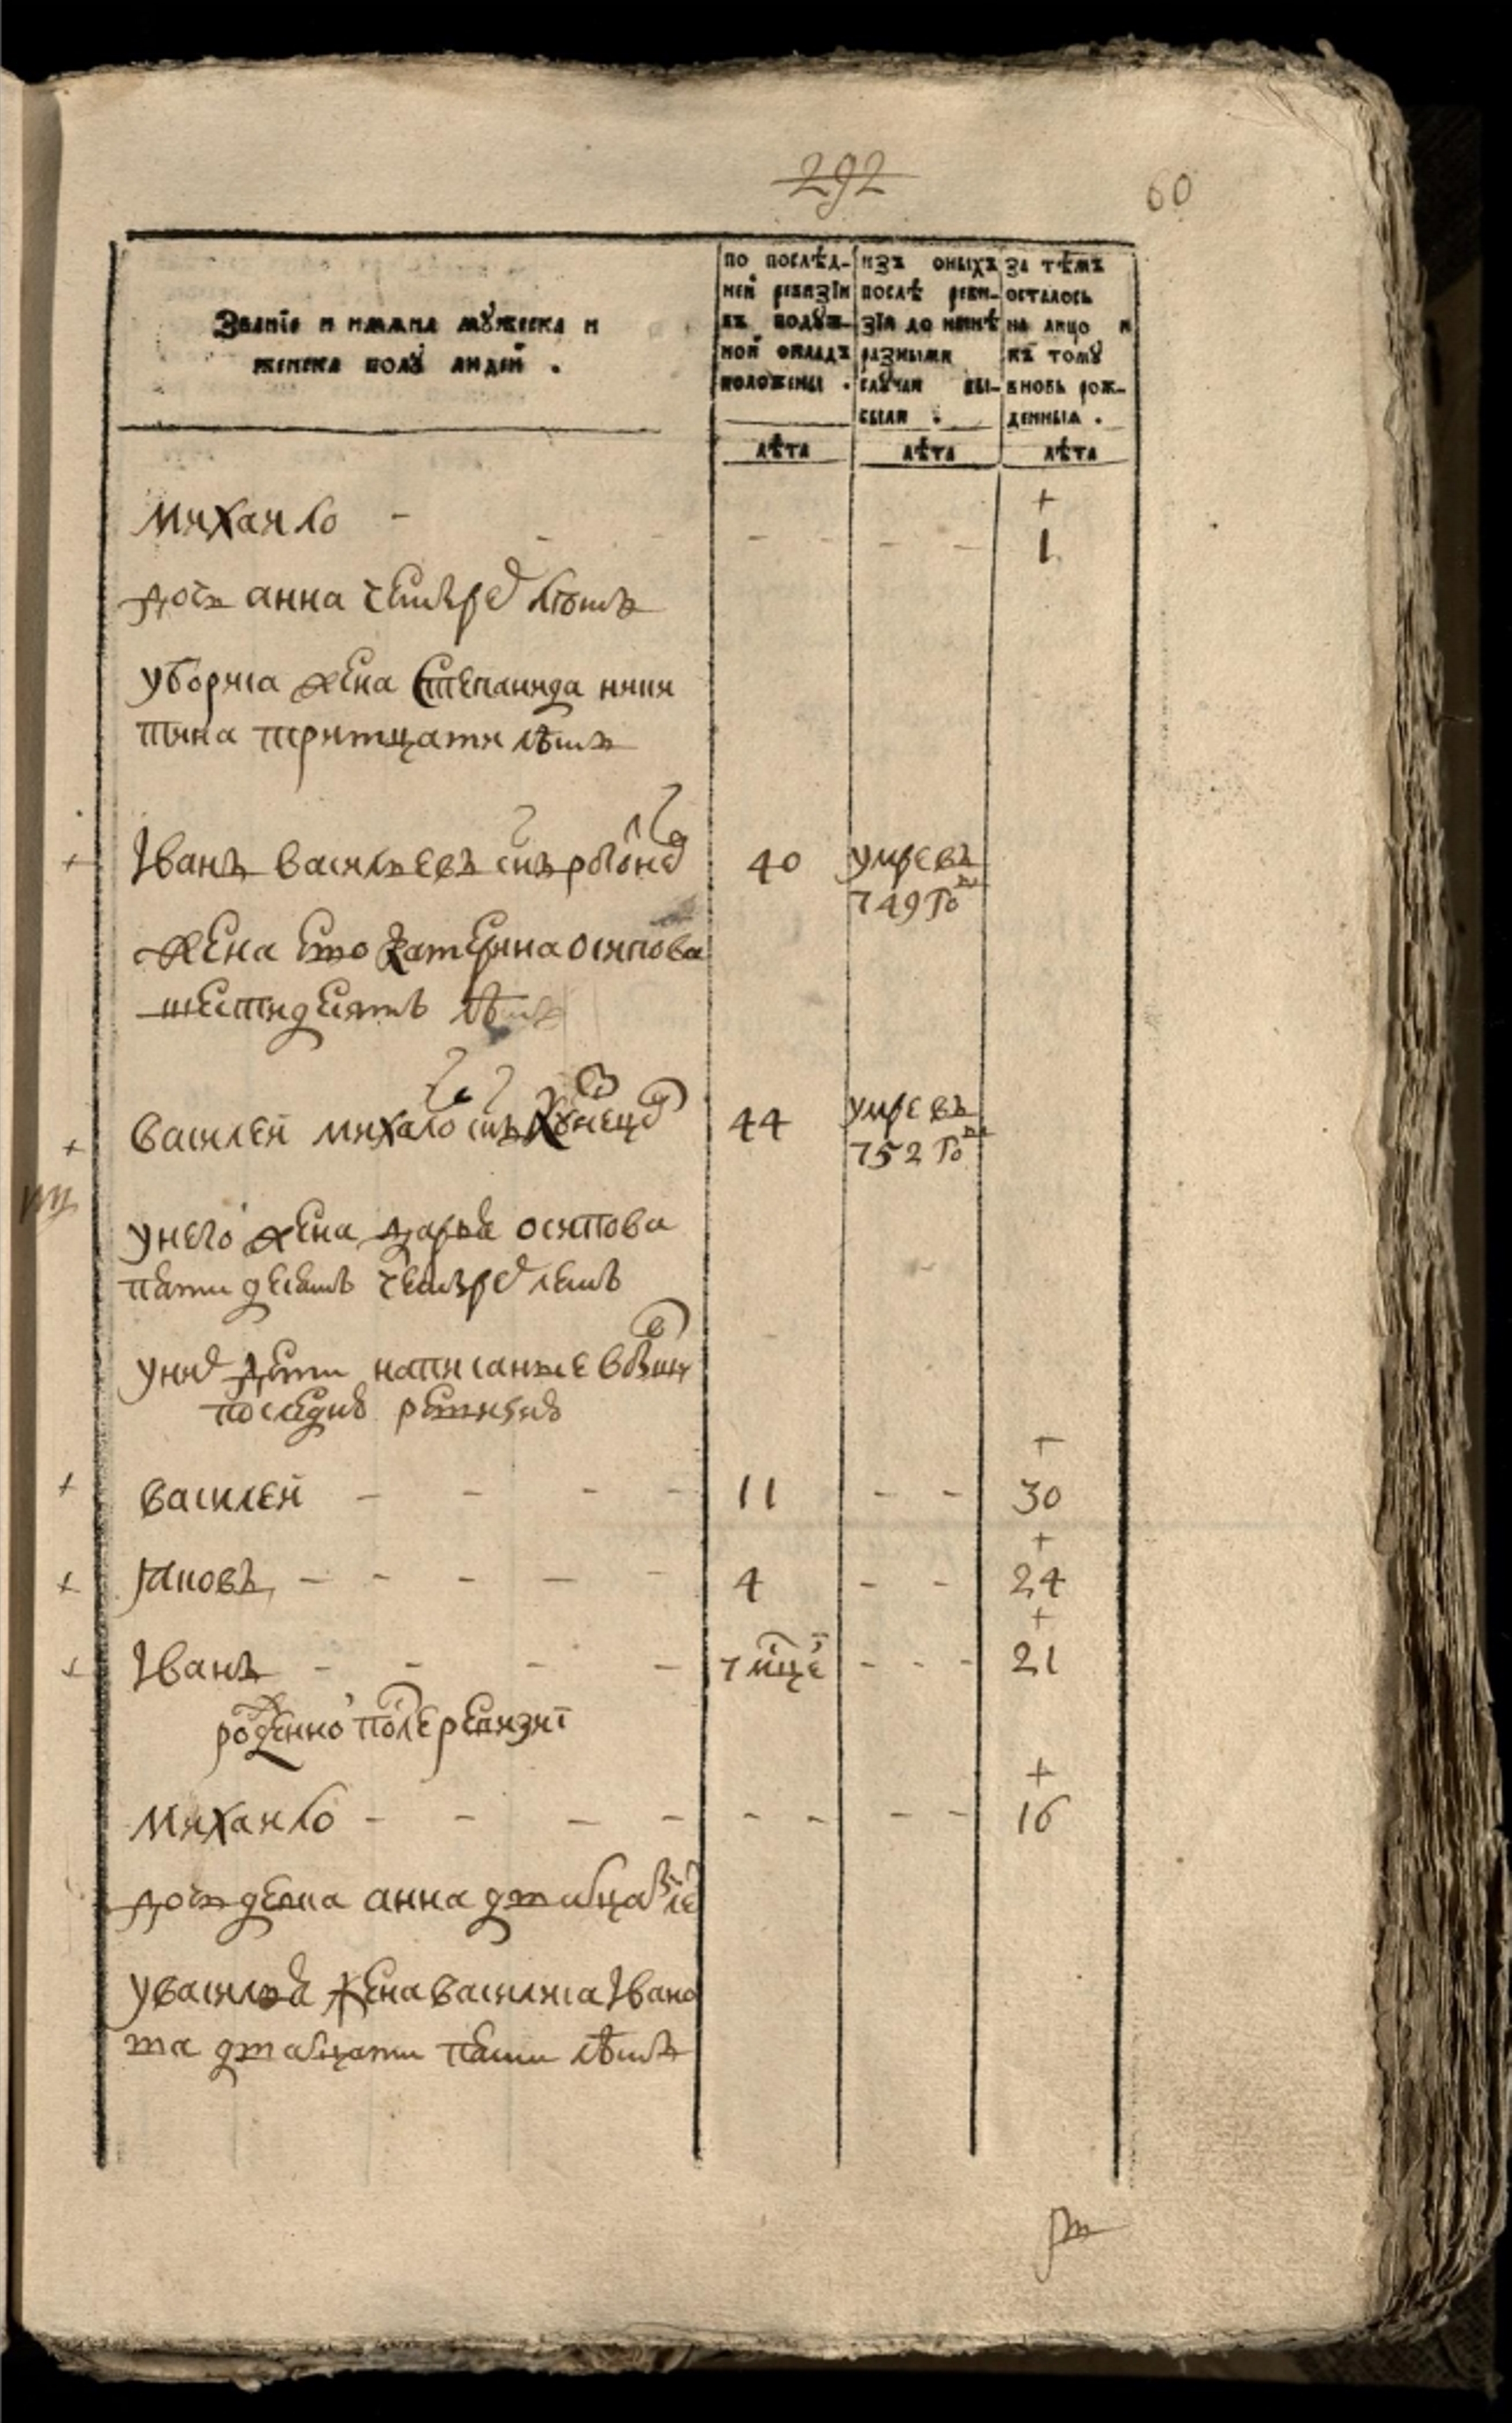 292
60
Званїе и имѧна мꙋжеска и
женска полꙋ людей .
по послѣд-
ней ревизїи
въ подꙋш-
ной окладъ
положены .
изъ оныхъ
послѣ реви-
зїи до нынѣ
разными
слꙋчаи вы-
были .
за тѣмъ
осталось
на лицо и
къ томꙋ
вновь рож-
денныѧ .
лѣта
лѣта
лѣта
михаило - - - - - 1
дочь анна четырех летъ
уборяса жена степанида ники
тина тритцати лѣтъ
Іванъ васильевъ снъ 40 умре въ
749 го
жена ево катерина осипова
шестидесятъ лѣтъ
василей михаило снъ кунецо 44 умре въ
752 го
у него жена дарья осипова
пятидесятъ четырех летъ
у них дети написанные в
последнею ревизию
василей - - - - 11 - - 30
яковъ - - - - - 4 - - 24
Іванъ - - - - 7 мце - - - 21
рожденной после ревизиї
михаило - - - - - - - - 16
дочь девка анна дватцат ле
у василья жена василиса Івано
ва дватцати пяти лѣтъ